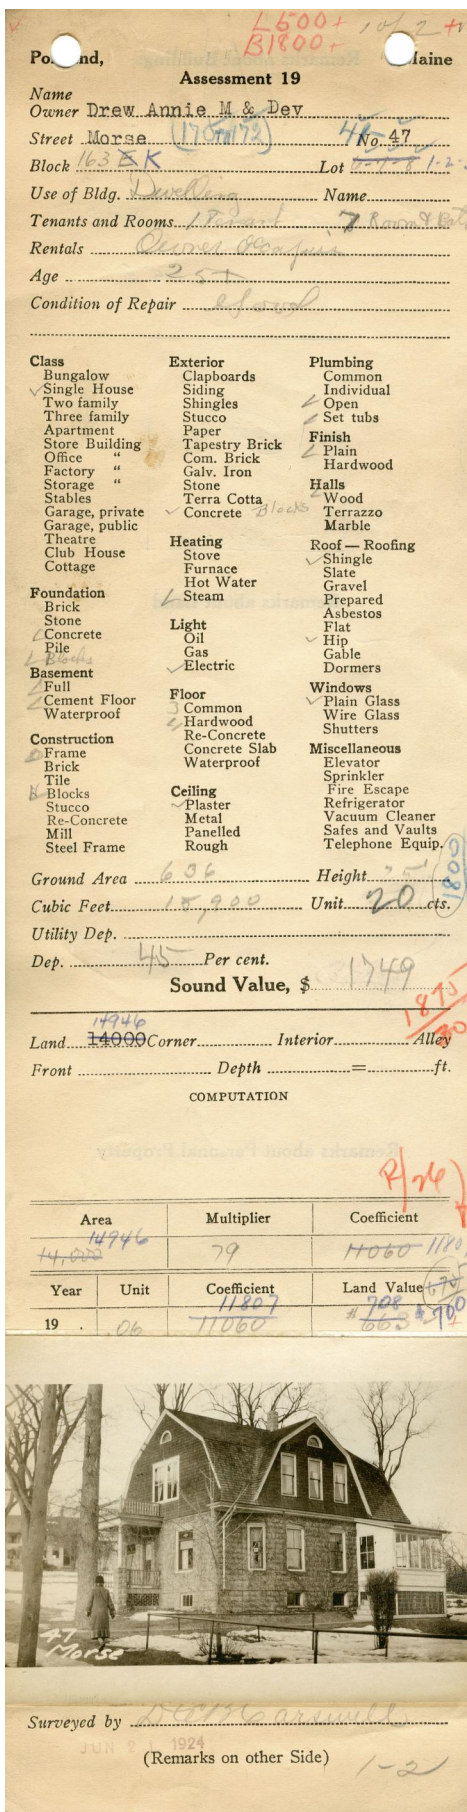 L500+ 10/2 +
B1800+
Po nd, Maine
Assessment 19
Name
Owner Drew Annie M & Dev
Street Morse (170 to 172) 45 No. 47
Block 163 E K Lot 6-7-8 1-2-
Use of Bldg. Dwelling Name
Tenants and Rooms 1 Tenant 7 Room & Bath
Rentals Owner Occupies
Age 25+
Condition of Repair Good
Class
Bungalow
Single House
Two family
Three family
Apartment
Store Building
Office "
Factory "
Storage "
Stables
Garage, private
Garage, public
Theatre
Club House
Cottage
Foundation
Brick
Stone
Concrete
Pile
Blocks
Basement
Full
Cement Floor
Waterproof
Construction
Frame
Brick
Tile
Blocks
Stucco
Re-Concrete
Mill
Steel Frame
Exterior
Clapboards
Siding
Shingles
Stucco
Paper
Tapestry Brick
Com. Brick
Galv. Iron
Stone
Terra Cotta
Concrete Blocks
Heating
Stove
Furnace
Hot Water
Steam
Light
Oil
Gas
Electric
Floor
Common
Hardwood
Re-Concrete
Concrete Slab
Waterproof
Ceiling
Plaster
Metal
Panelled
Rough
Plumbing
Common
Individual
Open
Set tubs
Finish
Plain
Hardwood
Halls
Wood
Terrazzo
Marble
Roof — Roofing
Shingle
Slate
Gravel
Prepared
Asbestos
Flat
Hip
Gable
Dormers
Windows
Plain Glass
Wire Glass
Shutters
Miscellaneous
Elevator
Sprinkler
Fire Escape
Refrigerator
Vacuum Cleaner
Safes and Vaults
Telephone Equip.
1800
Ground Area 636 Height 25
Cubic Feet 15,900 Unit 20 cts.
Utility Dep.
Dep. 45 Per cent.
Sound Value, $ 1749
1875
30
14946
Land 14000 Corner Interior Alley
Front Depth = ft.
COMPUTATION
R/26
Area Multiplier Coefficient
14946
14,000 79 11060 1180
Year Unit Coefficient Land Value 675
11807 708
19 . .06 11060 $ 663 $ 700 +
47
Morse
Surveyed by
JUN 21 1924
(Remarks on other Side)
1-2